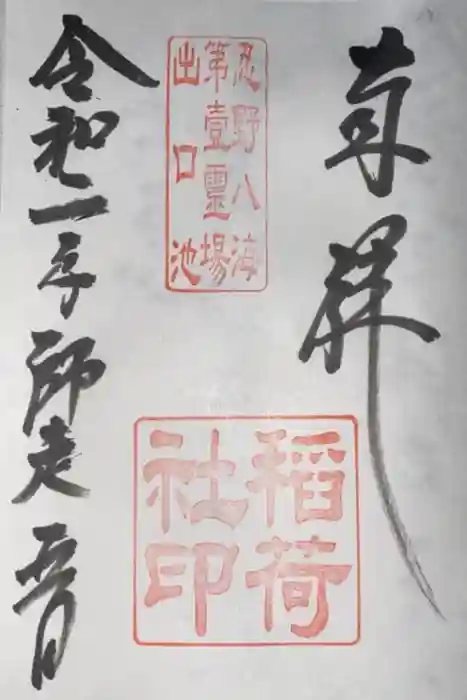 奉拝
忍野八海
第壹靈場
出口池
稻荷
社印
令和二年師走五日